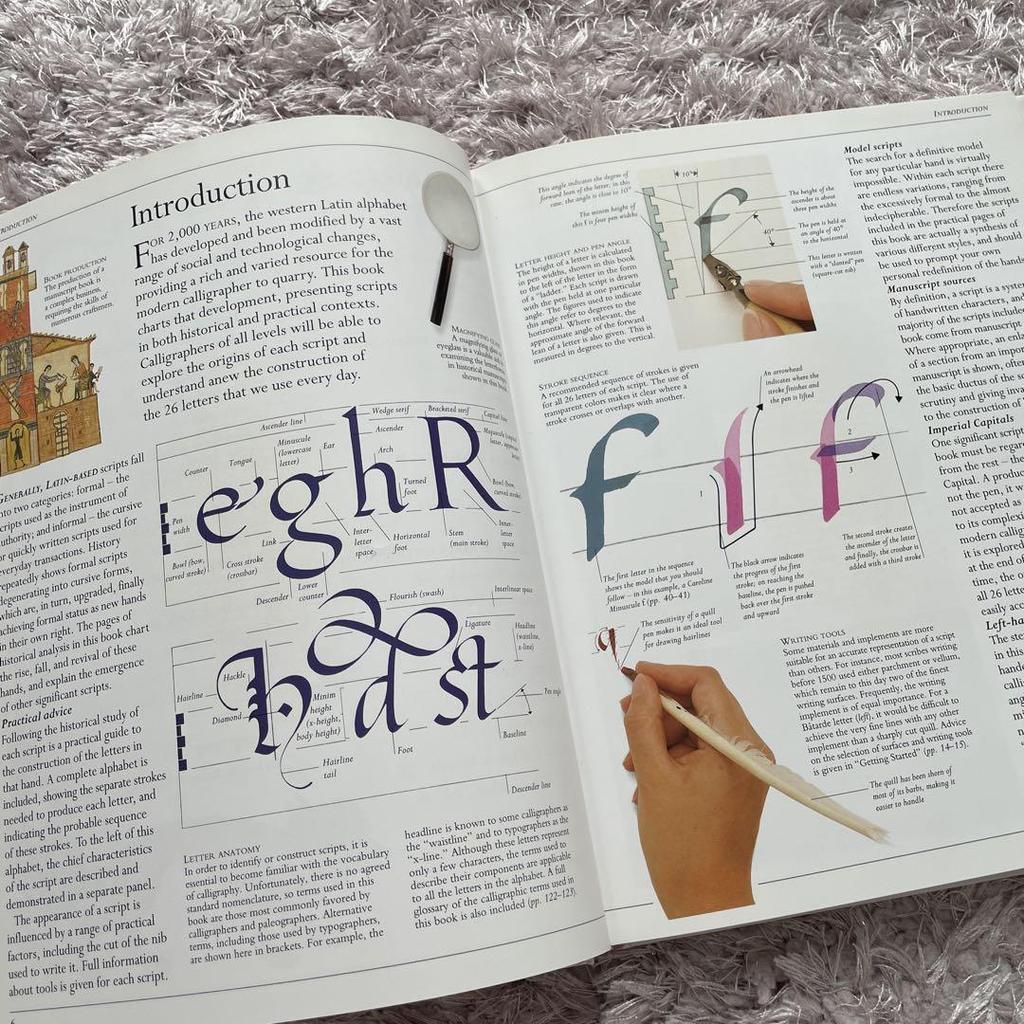 RODUCTION
Introduction
FOR 2,000 YEARS, the western Latin alphabet
has developed and been modified by a vast
range of social and technological changes,
providing a rich and varied resource for the
modern calligrapher to quarry. This book
charts that development, presenting scripts
in both historical and practical contexts.
Calligraphers of all levels will be able to
explore the origins of each script and
understand anew the construction of
the 26 letters that we use every day.
BOOK PRODUCTION
The production of a
manuscript book is
a complex business,
requiring the skills of
numerous craftsmen.
MAGNIFYING
A magnifying
eyeglass is a valuable
examining the letterforms
in historical manuscripts
shown in this book
GENERALLY, LATIN-BASED scripts fall
into two categories: formal – the
scripts used as the instrument of
authority; and informal – the cursive
or quickly written scripts used for
everyday transactions. History
repeatedly shows formal scripts
degenerating into cursive forms,
which are, in turn, upgraded, finally
achieving formal status as new hands
in their own right. The pages of
historical analysis in this book chart
the rise, fall, and revival of these
hands, and explain the emergence
of other significant scripts.
Practical advice
Following the historical study of
each script is a practical guide to
the construction of the letters in
that hand. A complete alphabet is
included, showing the separate strokes
needed to produce each letter, and
indicating the probable sequence
of these strokes. To the left of this
alphabet, the chief characteristics
of the script are described and
demonstrated in a separate panel.
The appearance of a script is
influenced by a range of practical
factors, including the cut of the nib
used to write it. Full information
about tools is given for each script.
Ascender line
Wedge serif
Bracketed serif
Capital line
Counter
Tongue
Minuscule
(lowercase
letter)
Ear
Ascender
Arch
Majuscule (capital
letter,
e g h R
Pen
width
Turned
foot
Bowl (bow,
curved stroke)
Bowl (bow,
curved stroke)
Link
Cross stroke
(crossbar)
Inter-
letter
space
Horizontal
foot
Stem
(main stroke)
Inter-
letter
space
Descender
Lower
counter
Flourish (swash)
Interlinear space
Ligature
Headline
(waistline,
x-line)
Hackle
Hairline
Diamond
h d st
Minim
height
(x-height,
body height)
Pen
Foot
Baseline
Hairline
tail
Descender line
LETTER ANATOMY
In order to identify or construct scripts, it is
essential to become familiar with the vocabulary
of calligraphy. Unfortunately, there is no agreed
standard nomenclature, so terms used in this
book are those most commonly favored by
calligraphers and paleographers. Alternative
terms, including those used by typographers,
are shown here in brackets. For example, the
headline is known to some calligraphers as
the "waistline" and to typographers as the
"x-line." Although these letters represent
only a few characters, the terms used to
describe their components are applicable
to all the letters in the alphabet. A full
glossary of the calligraphic terms used in
this book is also included (pp. 122–123).
INTRODUCTION
This angle indicates the degree of
forward lean of the letter, in this
case, the angle is close to 10°
The minim height of
this f is four pen widths
10°
f
40°
The height of the
ascender is about
three pen widths
The pen is held at
an angle of 40°
to the horizontal
This letter is written
with a "slanted" pen
(square-cut nib)
LETTER HEIGHT AND PEN ANGLE
The height of a letter is calculated
in pen widths, shown in this book
to the left of the letter in the form
of a "ladder." Each script is drawn
with the pen held at one particular
angle. The figures used to indicate
this angle refer to degrees to the
horizontal. Where relevant, the
approximate angle of the forward
lean of a letter is also given. This is
measured in degrees to the vertical.
STROKE SEQUENCE
A recommended sequence of strokes is given
for all 26 letters of each script. The use of
transparent colors makes it clear where a
stroke crosses or overlaps with another.
An arrowhead
indicates where the
stroke finishes and
the pen is lifted
f
1
2
3
The first letter in the sequence
shows the model that you should
follow – in this example, a Caroline
Minuscule f (pp. 40–41)
The black arrow indicates
the progress of the first
stroke; on reaching the
baseline, the pen is pushed
back over the first stroke
and upward
The second stroke creates
the ascender of the letter
and finally, the crossbar is
added with a third stroke
The sensitivity of a quill
pen makes it an ideal tool
for drawing hairlines
WRITING TOOLS
Some materials and implements are more
suitable for an accurate representation of a script
than others. For instance, most scribes writing
before 1500 used either parchment or vellum,
which remain to this day two of the finest
writing surfaces. Frequently, the writing
implement is of equal importance. For a
Bâtarde letter (left), it would be difficult to
achieve the very fine lines with any other
implement than a sharply cut quill. Advice
on the selection of surfaces and writing tools
is given in "Getting Started" (pp. 14–15).
The quill has been shorn of
most of its barbs, making it
easier to handle
Model scripts
The search for a definitive model
for any particular hand is virtually
impossible. Within each script there
are endless variations, ranging from
the excessively formal to the almost
indecipherable. Therefore the scripts
included in the practical pages of
this book are actually a synthesis of
various different styles, and should
be used to prompt your own
personal redefinition of the hands
Manuscript sources
By definition, a script is a system
of handwritten characters, and
majority of the scripts included
book come from manuscript
Where appropriate, an enl
of a section from an impor
manuscript is shown, ofte
the basic ductus of the s
scrutiny and giving inva
to the construction of
Imperial Capitals
One significant script
book must be regar
from the rest – the
Capital. A produc
not the pen, it w
not accepted as
to its complexi
modern callig
it is explored
at the end of
time, the o
all 26 lette
easily acce
Left-ha
The ste
in this
hand
calli
are
ang
m